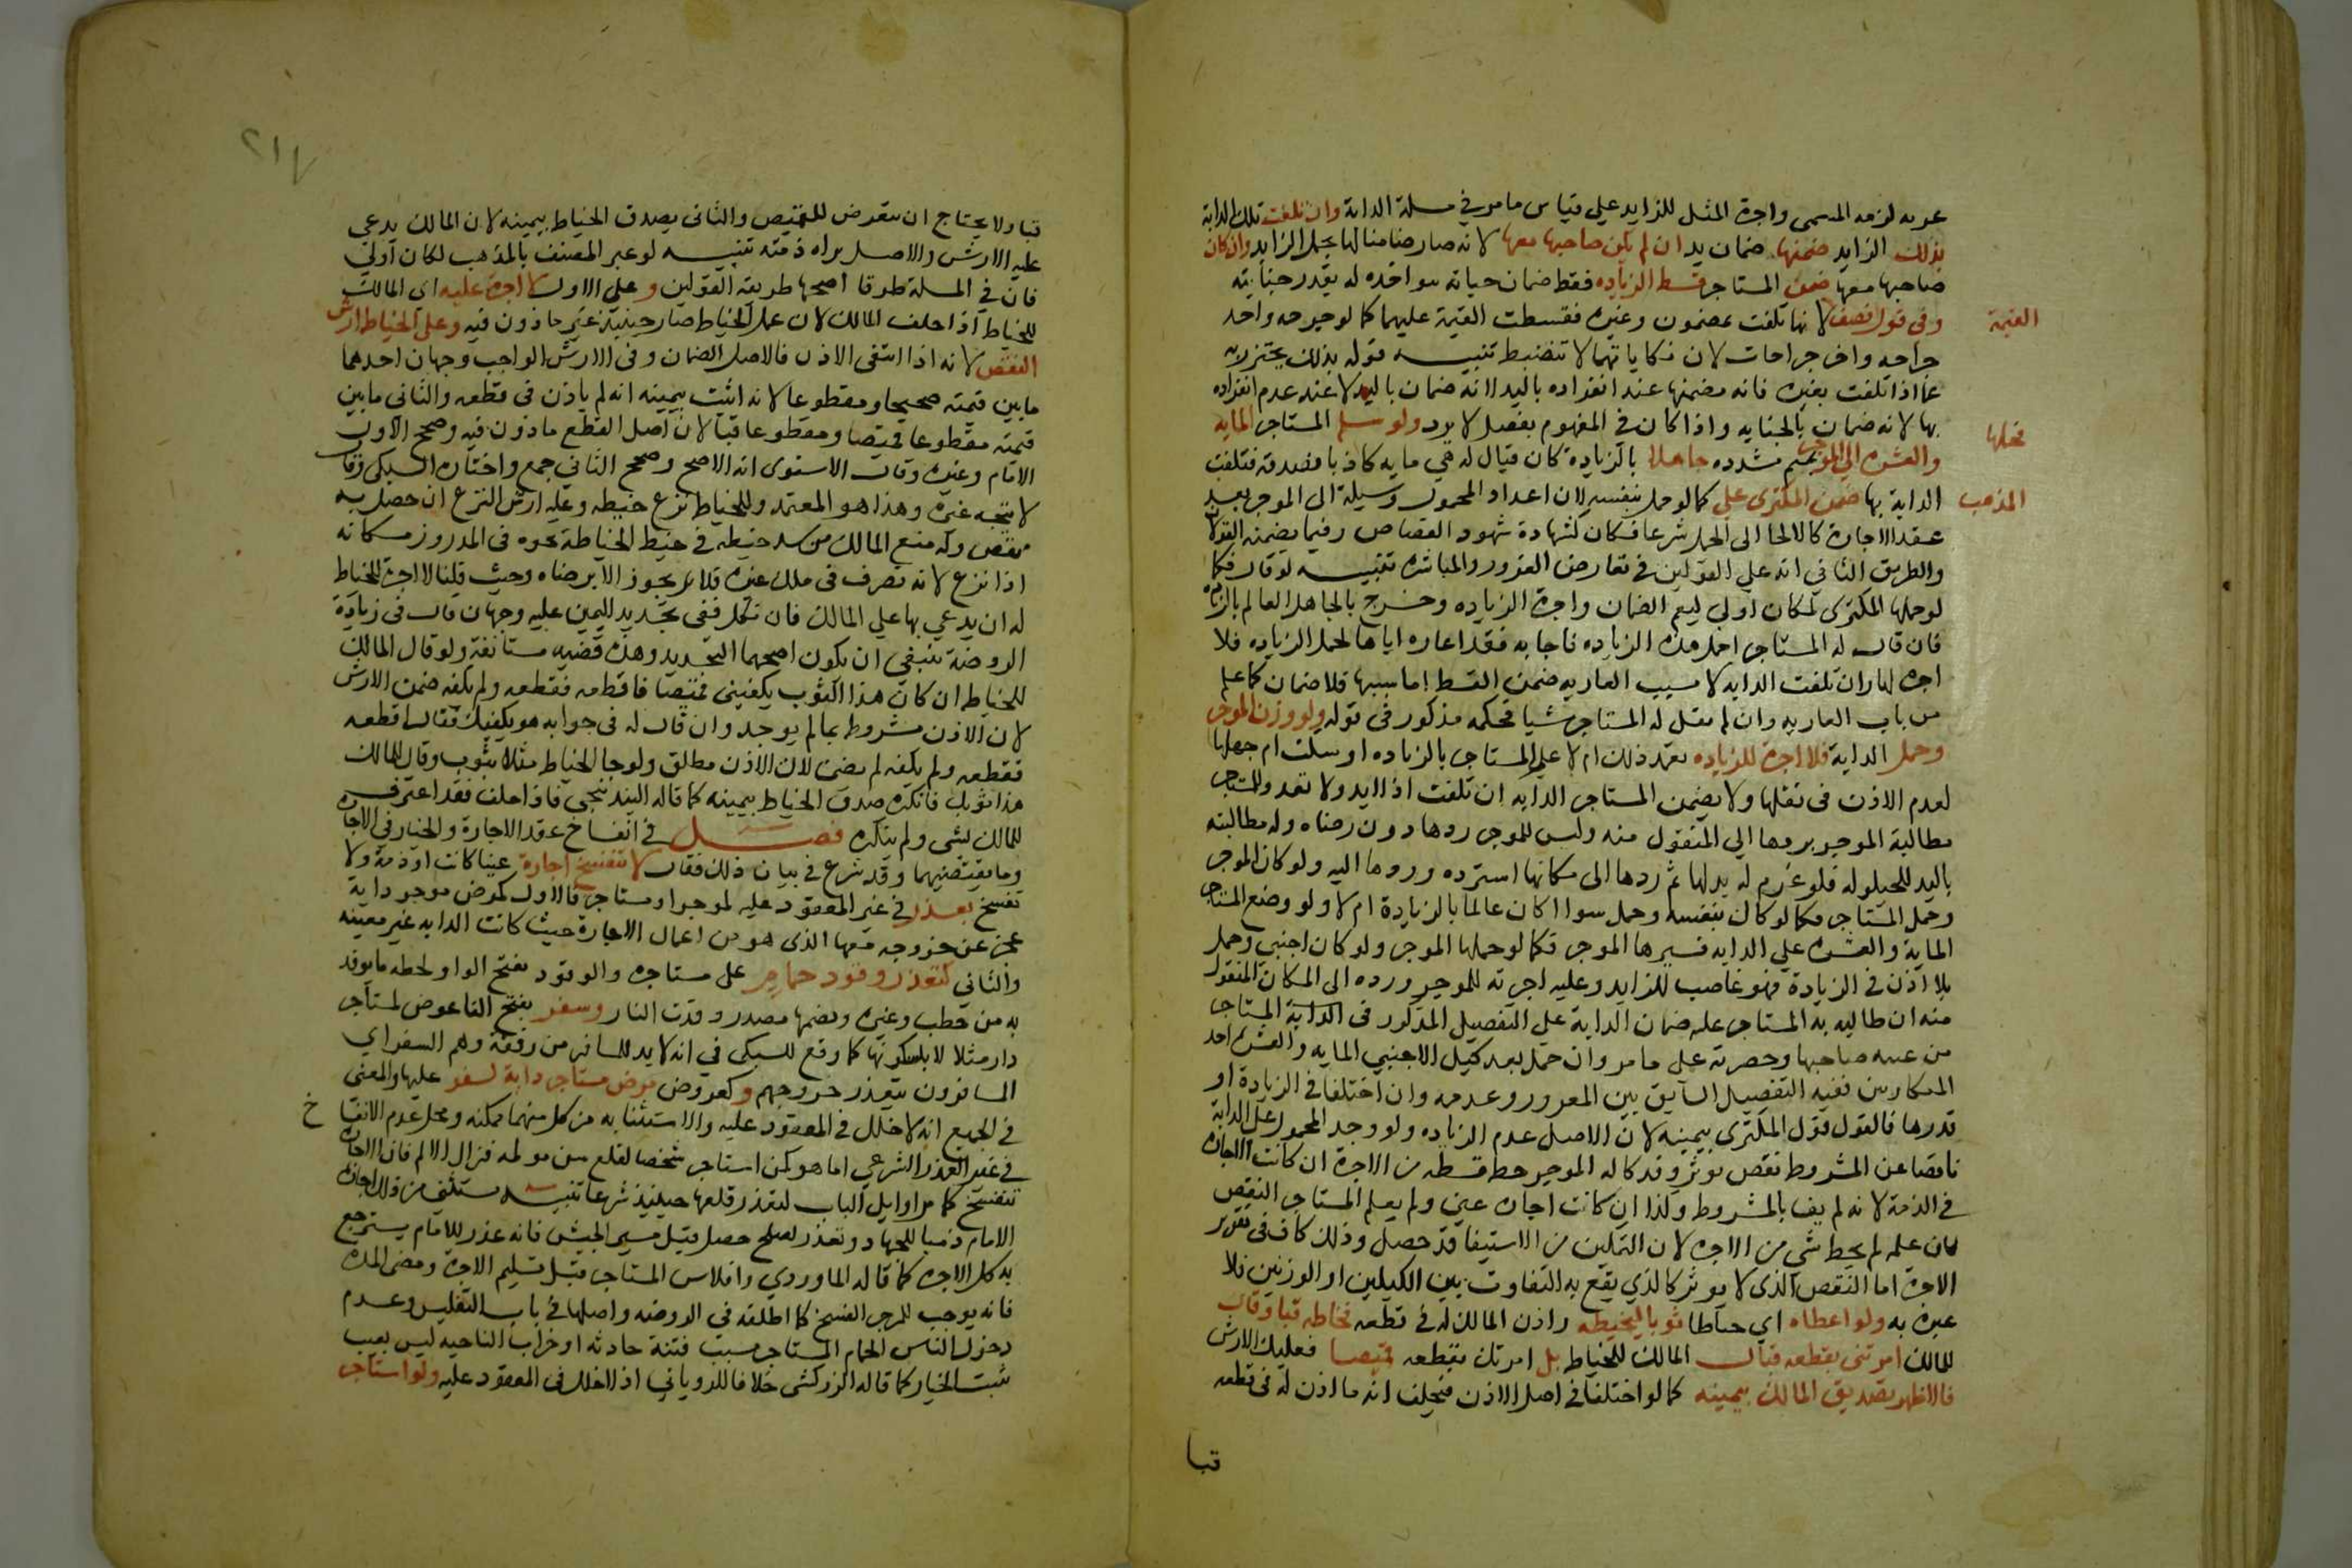 عوبه لزمه المسمى واجرة المثل للزايد علي قياس ما مر في مسلة الدابة وان تلفت تلك الدابة
بذلك الزايد ضمنها ضمان يد ان لم يكن صاحبها معها لانه صار ضامنا لها بحمل الزايد وان كان
صاحبها معها ضمن المستاجر قسط الزياده فقط ضمان جناية مواخذه له بقدر جنايته
وفى قول نصف لانها تلفت بمضمون وغيره فقسطت القيمة عليهما كما لو جرحه واحد
القيمة
جراحه واخر جراحات لان نكاياتهما لا تنضبط تنبيه قوله بذلك يحترز به
عما اذا تلفت بغيره فانه يضمنها عند انفراده باليد لانه ضمان باليد لا عند عدم انفراده
بها لانه ضمان بالجنايه واذا كان في المفهوم تفصيل لا يرد ولو سلم المستاجر المايه
والعشره الي الموجر فحملها مشدده جاهلا بالزيادة كان قيال له هي مايه كاذبا فصدقه فتلفت
فحملها
الدابة بها ضمن المكترى علي المذهب كما لو حمل بنفسه لان اعداد المحمول وسيلة الى الموجر بعد
المذهب
عقد الاجارة كالالجا الى الحمل شرعا فكان كشهادة شهود القصاص وفيما يضمنه القولان
والطريق الثاني انه علي القولين في تعارض الغرور والمباشره تنبيه لو قال فكما
لو حملها المكترى لكان اولي ليعم الضمان واجرة الزياده وخرج بالجاهل العالم بالزياده
فان قال له المستاجر احمل هذه الزياده فاجابه فقد اعاره اياها لحمل الزياده فلا
اجره لها وان تلفت الدابه لا بسبب العاريه ضمن القسط اما بسببها فلا ضمان كما علم
من باب العاريه وان لم يقل له المستاجر شيا فحكمه مذكور في قوله ولو وزن الموجر
وحمل الدابة فلا اجرة للزياده تعمد ذلك ام لا علم المستاجر بالزياده او سكت ام جهلها
لعدم الاذن في نقلها ولا يضمن المستاجر الدابه ان تلفت اذ لا يد ولا تعد وللمستاجر
مطالبة الموجر بردها الي المنقول منه وليس للموجر ردها دون رضاه وله مطالبته
باليد للحيلوله فلو غرم له بدلها ثم ردها الى مكانها استرده وردها اليه ولو كان الموجر
وحمل المستاجر فكما لو كال بنفسه وحمل سوا اكان عالما بالزيادة ام لا ولو وضع المستاجر
الماية والعشره علي الدابه فسيرها الموجر فكما لو حملها الموجر ولو كان اجنبي وحمل
بلا اذن في الزيادة فهو غاصب للزايد وعليه اجرته للموجر ورده الى المكان المنقول
منه ان طالبه به المستاجر عليه ضمان الدابة علي التفصيل المذكور في الدابة المستاجر
من غيبة صاحبها وحضرته على ما مر وان حمل بعد كيل الاجنبي المايه والعشره احد
المتكاريين ففيه التفصيل السابق بين الغرور وعدمه وان اختلفا في الزيادة او
قدرها فالقول قول المكترى بيمينه لان الاصل عدم الزياده ولو وجد المحمول علي الدابة
ناقصا عن المشروط نقص يوثر وقد كاله الموجر حط قسطه من الاجرة ان كانت الاجاره
في الذمة لانه لم يف بالمشروط وكذا ان كانت اجاره عين ولم يعلم المستاجر النقص
فان علمه لم يحط شي من الاجره لان التمكين من الاستيفا قد حصل وذلك كاف في تقرير
الاجرة اما النقص الذى لا يوثر كالذي يقع به التفاوت بين الكيلين او الوزنين فلا
عبرة به ولو اعطاه اي خياطا ثوبا ليخيطه واذن المالك له في قطعه فخاطه قبا وقال
للمالك امرتني بقطعه قبا فقال المالك للخياط بل امرتك بقطعه قميصا فعليك الارش
فالاظهر تصديق المالك بيمينه كما لو اختلفا في اصل الاذن فيحلف انه ما اذن له فى قطعه
قبا
٢١٧
قبا ولا يحتاج ان يتعرض للقميص والثانى يصدق الخياط بيمينه لان المالك يدعي
عليه الارش والاصل براه ذمته تنبيه لو عبر المصنف بالمذهب لكان اولي
فان في المسلة طرقا اصحها طريقة القولين وعلي الاول لا اجرة عليه اى المالك
للخياط اذا حلف المالك لان عمل الخياط صار حينيذ غير ماذون فيه وعلي الخياط ارش
النقص لانه اذا انتفى الاذن فالاصل الضمان وفى الارش الواجب وجهان احدهما
ما بين قيمته صحيحا ومقطوعا لانه اثبت بيمينه انه لم ياذن فى قطعه والثانى ما بين
قيمته مقطوعا قميصا ومقطوعا قبا لان اصل القطع ماذون فيه وصحح الاول
الامام وغيره وقال الاسنوى انه الاصح وصحح الثاني جمع واختاره السبكى وقال
لا يتجه غيره وهذا هو المعتمد وللخياط نزع خيطه وعليه ارش النزع ان حصل به
نقص وله منع المالك من شد خيطه في خيط الخياطة يجره فى المدروز مكانه
اذا نزع لانه تصرف فى ملك غيره فلا يجوز الا برضاه وحيث قلنا لا اجرة للخياط
له ان يدعي بها علي المالك فان نكل ففى تجديد اليمين عليه وجهان قال فى زيادة
الروضة ينبغى ان يكون اصحهما التجديد وهذه قضيه مستانفة ولو قال المالك
للخياط ان كان هذا الثوب يكفيني قميصا فاقطعه فقطعه ولم يكفه ضمن الارش
لان الاذن مشروط بما لم يوجد وان قال له فى جوابه هو يكفيك فقال اقطعه
فقطعه ولم يكفه لم يضمن لان الاذن مطلق ولو جا الخياط مثلا بثوب وقال للمالك
هذا ثوبك فانكره صدق الخياط بيمينه كما قاله البندنيجي فاذا حلف فقد اعترف
للمالك بشى ولم ينكره فصل في انفساخ عقد الاجارة والخيار في الاجاره
وما يقتضيهما وقد شرع في بيان ذلك فقال لا تنفسخ اجارة عينا كانت او ذمة ولا
تفسخ بعذر في غير المعقود عليه لموجر او مستاجر فالاول كمرض موجر دابة
عجز عن خروجه معها الذى هو من اعمال الاجارة حيث كانت الدابه غير معينه
والثاني كتعذر وقود حمام على مستاجره والوقود بفتح الواو لخطه ما يوقد
به من حطب وغيره وبضمها مصدر وقدت النار وسفر بفتح الفا عوض لمستاجر
دار مثلا لا بسكونها كما وقع للسبكى في انه لا بد للسافر من رفقة وهم السفر اي
المسافرون يتعذر خروجهم وكعروض مرض مستاجر دابة لسفر عليها والمعنى
في الجميع انه لا خلل في المعقود عليه والاستنابه من كل منهما ممكنه ومحل عدم الانفسا
خ
في غير العذر الشرعي اما هو كمن استاجر شخصا لقلع سن مولمه فزال الالم فان الاجاره
تنفسخ كما مر اوايل الباب لتعذر قلعها حينيذ شرعا تنبيه يستثنى من ذلك اجارة
الامام ذميا للجهاد وتعذر لصلح حصل قبل مسير الجيش فانه عذر للامام يسترجع
به كل الاجره كما قاله الماوردي وافلاس المستاجر قبل تسليم الاجرة ومضى المده
فانه يوجب للموجر الفسخ كما اطلقه فى الروضه واصلها في باب التفليس وعدم
دخول الناس الحمام المستاجر بسبب فتنة حادثه او خراب الناحيه ليس بعيب
يثبت الخيار كما قاله الزركشى خلافا للرويانى اذ لا خلل فى المعقود عليه ولو استاجر